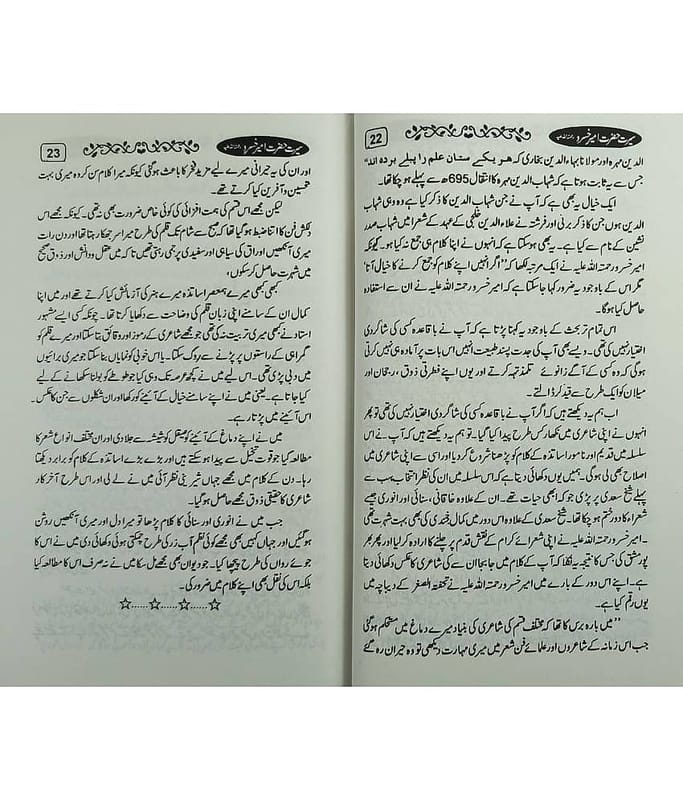 سیرت حضرت امیر خسرو رحمۃ اللہ علیہ
22
الدین مہرہ اور مولانا بہاء الدین بخاری کہ هر یکے ستان علم را پہلے برده اند"
جس سے یہ ثابت ہوتا ہے کہ شہاب الدین مہرہ کا انتقال 695ھ سے پہلے ہو چکا تھا۔
ایک خیال یہ بھی ہے کہ آپ نے جن شہاب الدین کا ذکر کیا ہے وہ وہی شہاب
الدین ہوں جن کا ذکر برنی اور فرشتہ نے علاؤ الدین خلجی کے عہد کے شعرا میں شہاب صدر
نشین کے نام سے کیا ہے۔ یہ بھی ہو سکتا ہے کہ انہوں نے اپنا کلام ہی جمع نہ کیا ہو۔ کیونکہ
امیر خسرو رحمتہ اللہ علیہ نے ایک مرتبہ لکھا کہ "اگر انہیں اپنے کلام کو جمع کرنے کا خیال آتا"
مگر اس کے باوجود یہ ضرور کہا جا سکتا ہے کہ امیر خسرو رحمتہ اللہ علیہ نے ان سے استفادہ
حاصل کیا ہوگا۔
اس تمام تر بحث کے باوجود یہ کہنا پڑتا ہے کہ آپ نے باقاعدہ کسی کی شاگردی
اختیار نہیں کی تھی۔ ویسے بھی آپ کی جدت پسند طبیعت انہیں اس بات پر آمادہ ہی نہیں کرتی
ہوگی کہ وہ کسی کے آگے زانوئے تلمذ تہہ کرتے اور یوں اپنے فطرتی ذوق، رجحان اور
میلان کو ایک طرح سے قید کر ڈالتے۔
اب ہم یہ دیکھتے ہیں کہ اگر آپ نے باقاعدہ کسی کی شاگردی اختیار نہیں کی تھی تو پھر
انہوں نے اپنی شاعری میں نکھار کس طرح پیدا کیا گیا۔ تو ہم یہ دیکھتے ہیں کہ آپ نے اس
سلسلہ میں قدیم اور نامور اساتذہ کے کلام کو پڑھنا شروع کر دیا اور اسی سے اپنی شاعری میں
اصلاح بھی لی ہوگی۔ ہمیں یوں دکھائی دیتا ہے کہ اس سلسلہ میں ان کی نظر انتخاب سب سے
پہلے شیخ سعدی پر پڑی جو کہ ابھی حیات تھے۔ ان کے علاوہ خاقانی، سنائی اور انوری جیسے
شعراء کا دور ختم ہو چکا تھا۔ شیخ سعدی کے علاوہ اس دور میں کمال خجندی کی بھی بہت شہرت تھی
۔ امیر خسرو رحمتہ اللہ علیہ نے اپنی شعرائے کرام کے نقش قدم پر چلنے کا ارادہ کر لیا اور پھر بھر
پور مشق کی جس کا نتیجہ یہ نکلا کہ آپ کے کلام میں جابجا ان سی کی شاعری کا عکس دکھائی دیتا
ہے۔ اپنے اس دور کے بارے میں امیر خسرو رحمتہ اللہ علیہ نے تحفتہ الصغر کے دیباچہ میں
یوں رقم کیا ہے۔
"میں بارہ برس کا تھا کہ مختلف قسم کی شاعری کی بنیاد میرے دماغ میں مستحکم ہو گئی
جب اس زمانہ کے شاعروں اور علمائے فن شعر میں میری مہارت دیکھی تو وہ حیران رہ گئے
سیرت حضرت امیر خسرو رحمۃ اللہ علیہ
23
اور ان کی یہ حیرانی میرے لیے مزید فخر کا باعث ہو گئی کیونکہ میرا کلام سن کر وہ میری بہت
تحسین و آفرین کیا کرتے تھے۔
لیکن مجھے اس قسم کی ہمت افزائی کی کوئی خاص ضرورت بھی نہ تھی۔ کیونکہ مجھے اس
دلکش فن کا اتنا ضبط ہو گیا تھا کہ صبح سے شام تک قلم کی طرح میرا سر جھکا رہتا تھا اور دن رات
میری آنکھیں اوراق کی سیاہی اور سفیدی پر جمی رہتی تھیں تا کہ میں عقل و دانش اور ذوق صحیح
میں شہرت حاصل کر سکوں،
کبھی کبھی میرے ہمعصر اساتذہ میرے ہنر کی آزمائش کیا کرتے تھے اور میں اپنا
کمال ان کے سامنے اپنی زبان قلم کی وضاحت سے دکھایا کرتا تھا۔ چونکہ کسی ایسے مشہور
استاد نے کبھی میری تربیت نہ کی تھی جو مجھے شاعری کے رموز اور دقائق بتا سکتا اور میرے قلم کو
گمراہی کے راستوں پر پڑنے سے روک سکتا۔ یا اس خوبی کو نمایاں بنا سکتا جو میری برائیوں
میں دبی پڑی تھی۔ اس لیے میں نے کچھ عرصہ تک وہی کیا جو طوطے کو بولنا سکھانے کے لیے
کیا جاتا ہے۔ یعنی میں نے اپنے سامنے خیال کے آئینے کو رکھا اور ان شکلوں سے جن کا عکس
اس آئینے میں پڑتا رہا ہے۔
میں نے اپنے دماغ کے آئینے کو صیقل کو شیشہ سے جلا دی اور ان مختلف انواع شعر کا
مطالعہ کیا جو قوت تخیل سے پیدا ہو سکتے ہیں اور بڑے بڑے اساتذہ کے کلام کو برابر دیکھتا
رہا۔ دن کے کلام میں مجھے جہاں شیرینی نظر آئی میں نے لے لی اور اس طرح آخر کار
شاعری کا حقیقی ذوق مجھے حاصل ہو گیا۔
جب میں نے انوری اور سنائی کا کلام پڑھا تو میرا دل اور میری آنکھیں روشن
ہو گئیں اور جہاں کہیں بھی مجھے کوئی نظم آب زر کی طرح چمکتی ہوئی دکھائی دی میں نے اس کا
جوئے رواں کی طرح پیچھا کیا۔ جو دیوان بھی مجھے مل سکا میں نے نہ صرف اس کا مطالعہ کیا
بلکہ اس کی نقل بھی اپنے کلام میں ضرور کی۔
☆....☆....☆....☆